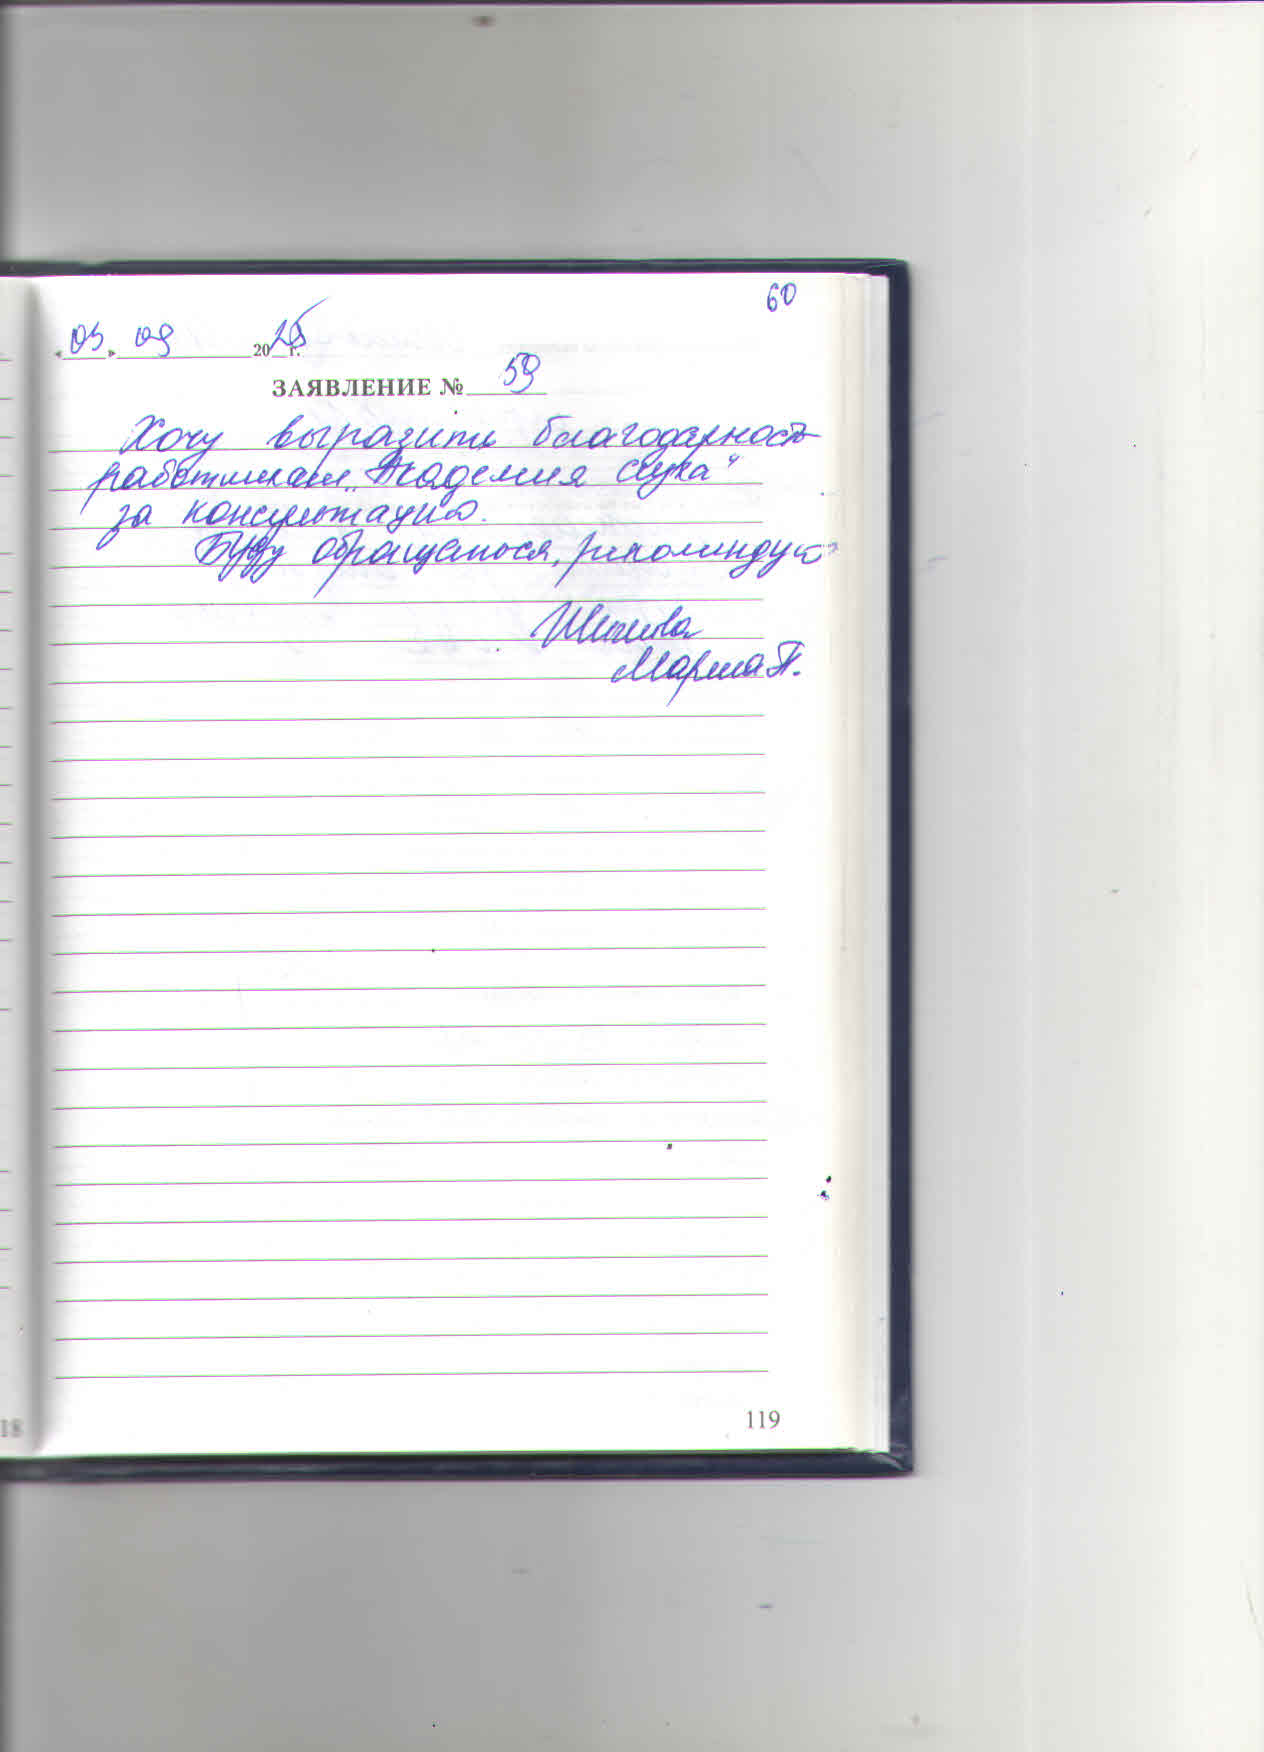 60
«03» 09 2025 г.
ЗАЯВЛЕНИЕ № 59
Хочу выразить благодарность
работникам „Академия слуха“
за консультацию.
Буду обращаться, рекомендую
Марина П.
119
18